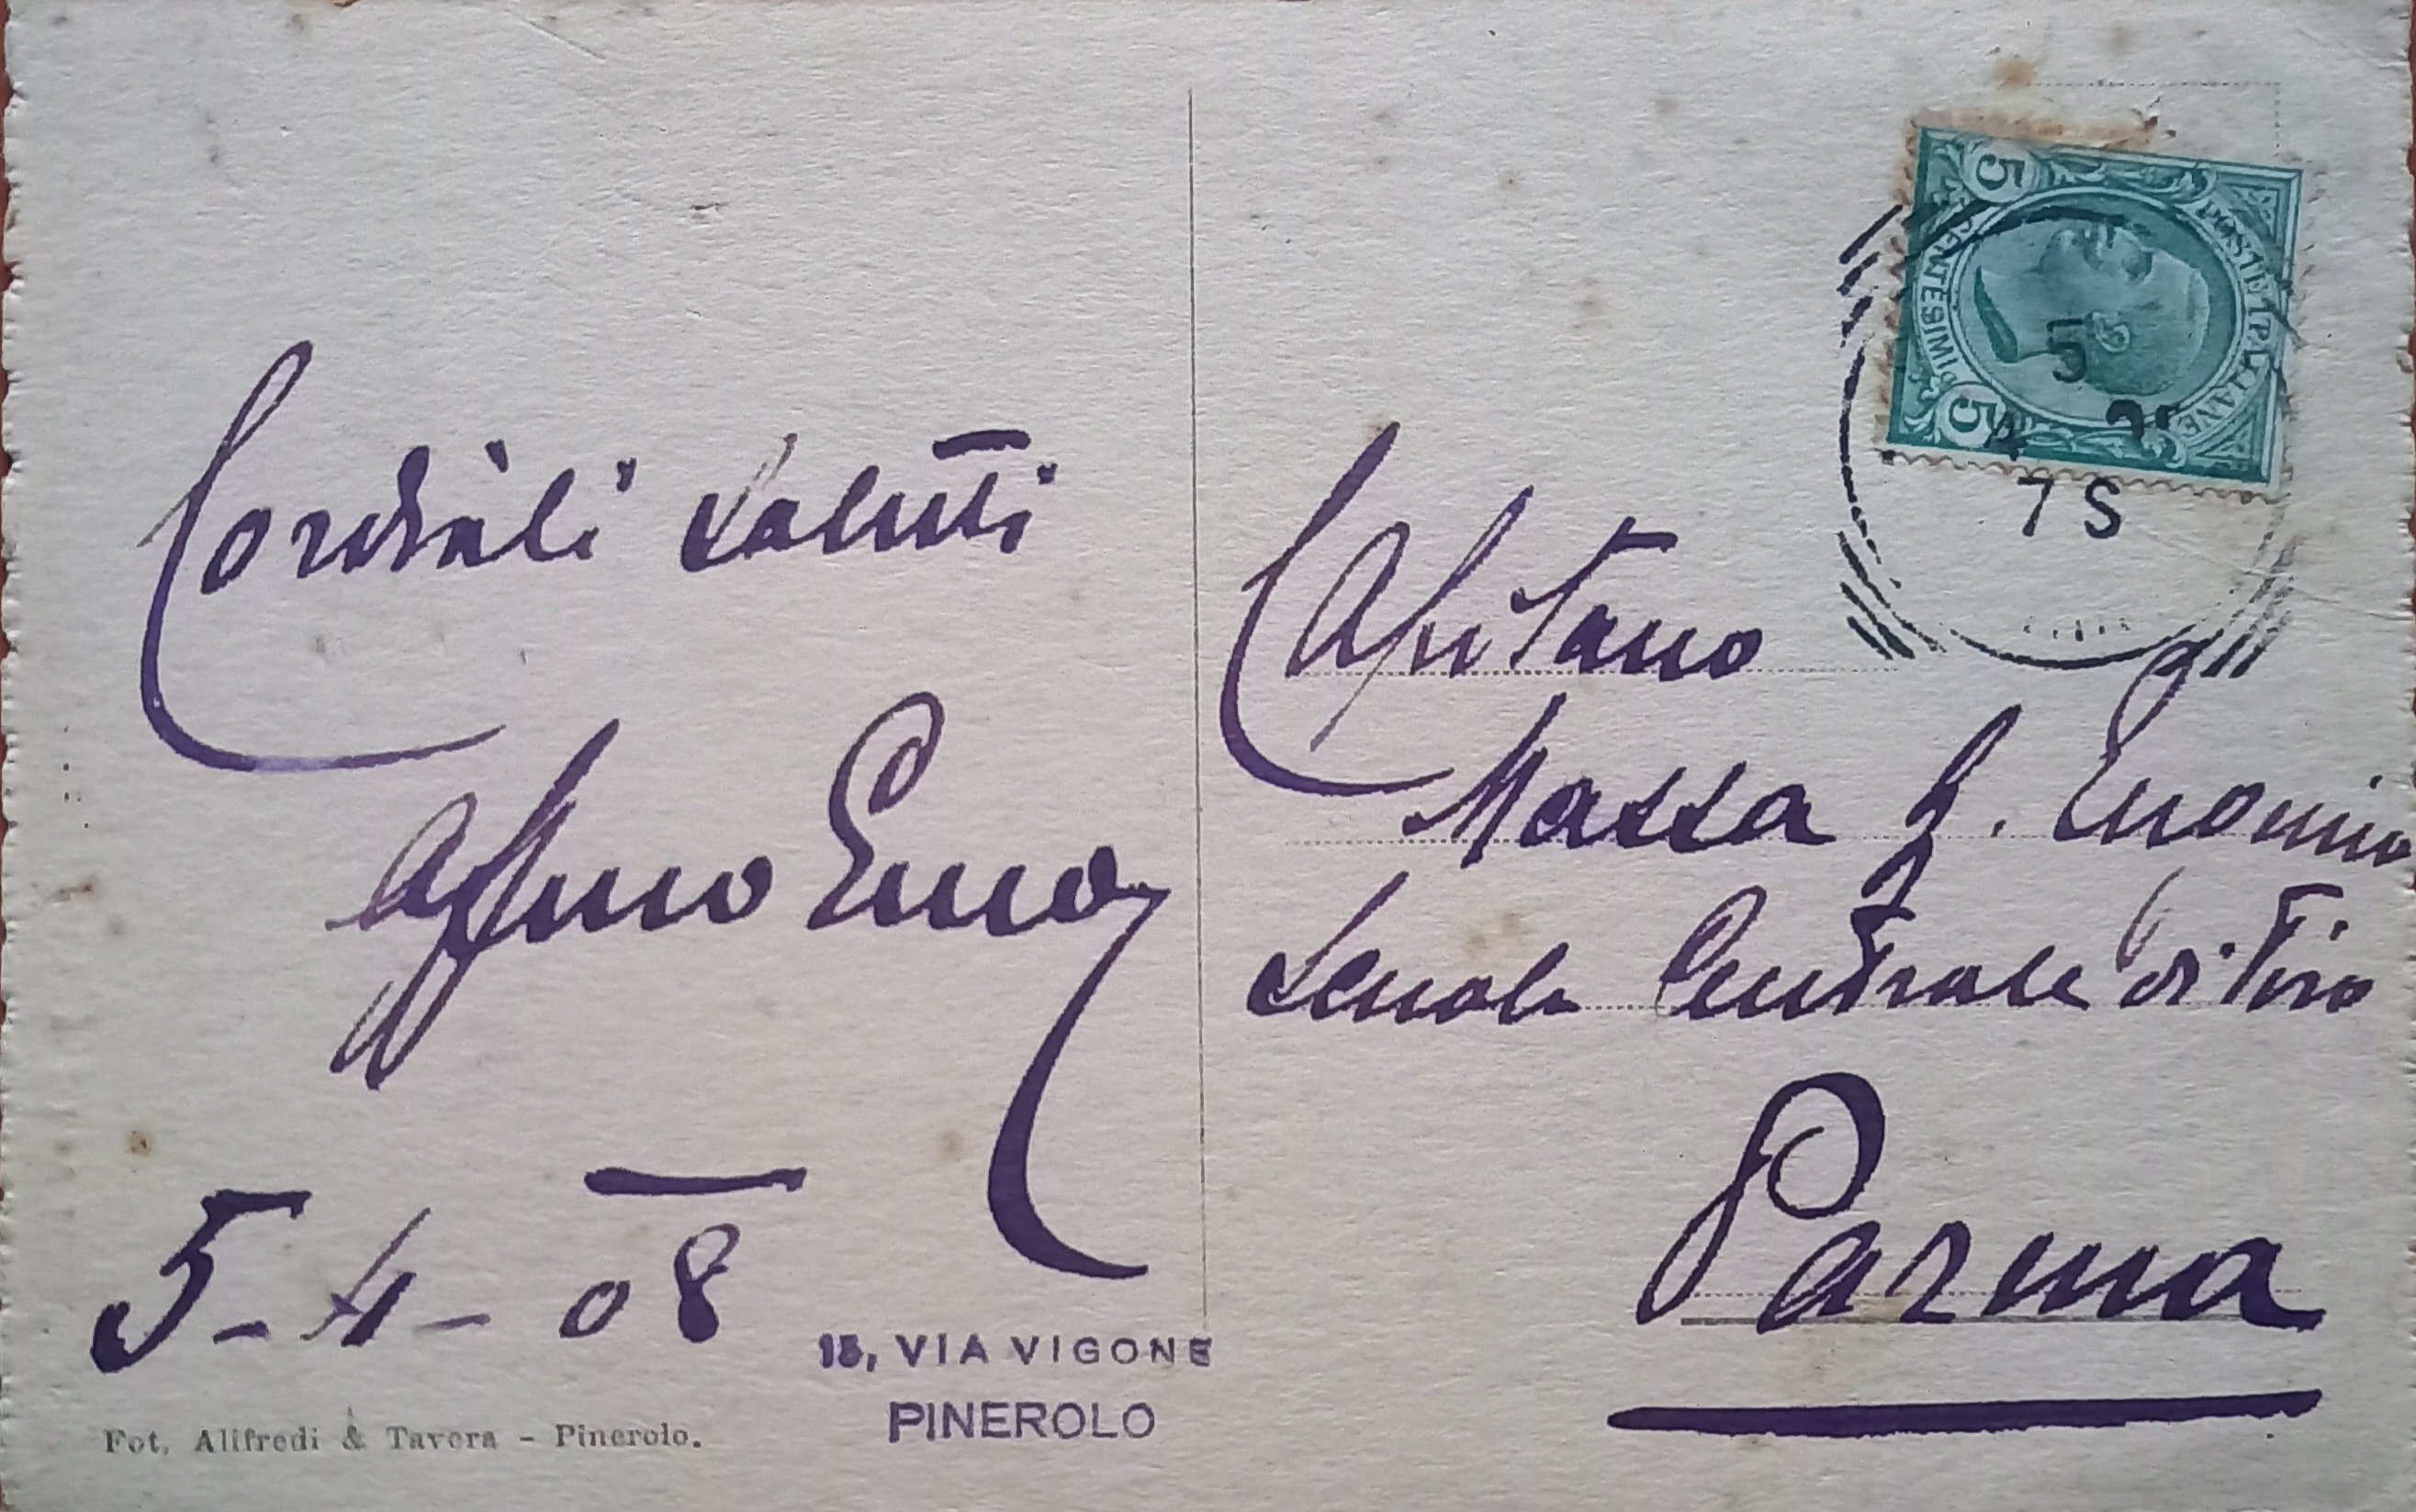 Cordiali saluti
Affmo
5-4-08
15, VIA VIGONE
PINEROLO
Fot. Alifredi & Tavera - Pinerolo.
5
POSTE ITALIANE
CENTESIMI
5
5
4
7 S
Capitano
Massa
Scuola Centrale di Tiro
Parma